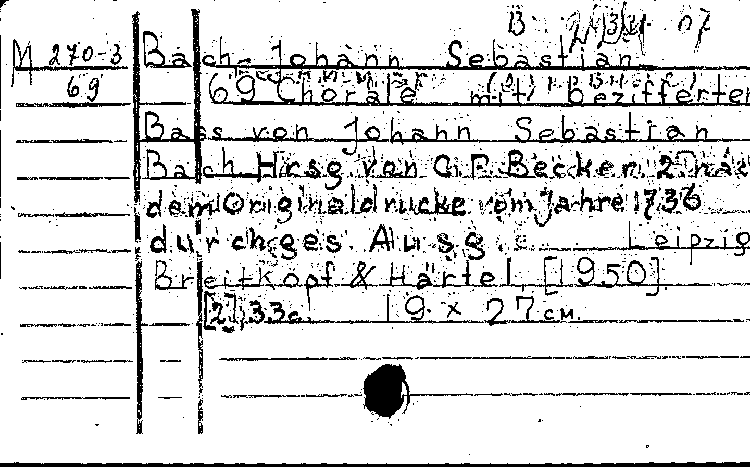 M 270-3
69
Bach, Johann Sebastian
69 Choräle mit bezifferten
Bass von Johann Sebastian
Bach. Hrsg. von C. F. Becker. 2. nac
dem Originaldrucke vom Jahre 1736
durchges. Ausg. Leipzig
Breitkopf & Härtel, [1950].
[2], 33 c. 19 x 27 см.